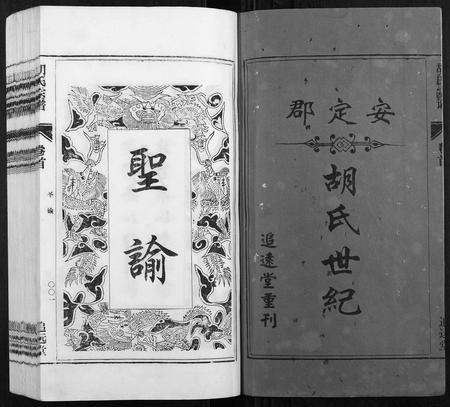 安定郡
胡氏世紀
追遠堂重刊
卷首
追遠堂
聖諭
胡氏宗譜
卷首
聖諭
〇〇一
追遠堂